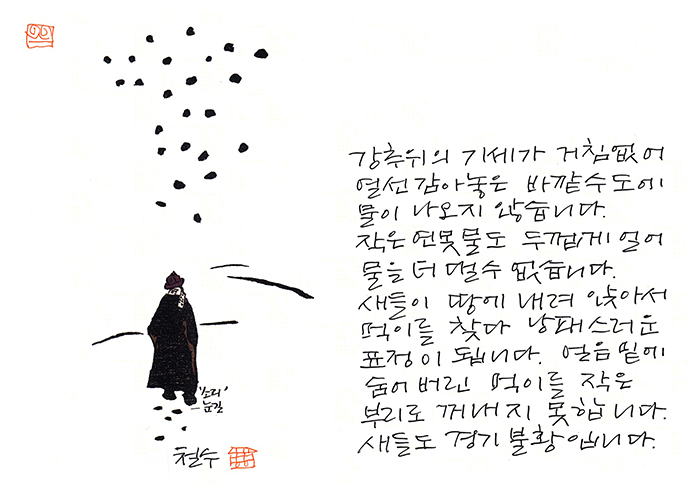 강추위의 기세가 거침없어
열선감아놓은 바깥수도에
물이 나오지 않습니다.
작은 연못물도 두껍게 얼어
물을 더 떨수 없습니다.
새들이 땅에 내려 앉아서
먹이를 찾다 낭패스러운
표정이 됩니다. 얼음 밑에
숨어버린 먹이를 작은
부리로 꺼내지 못합니다.
새들도 경기 불황입니다.
"소리"
-눈길
철수